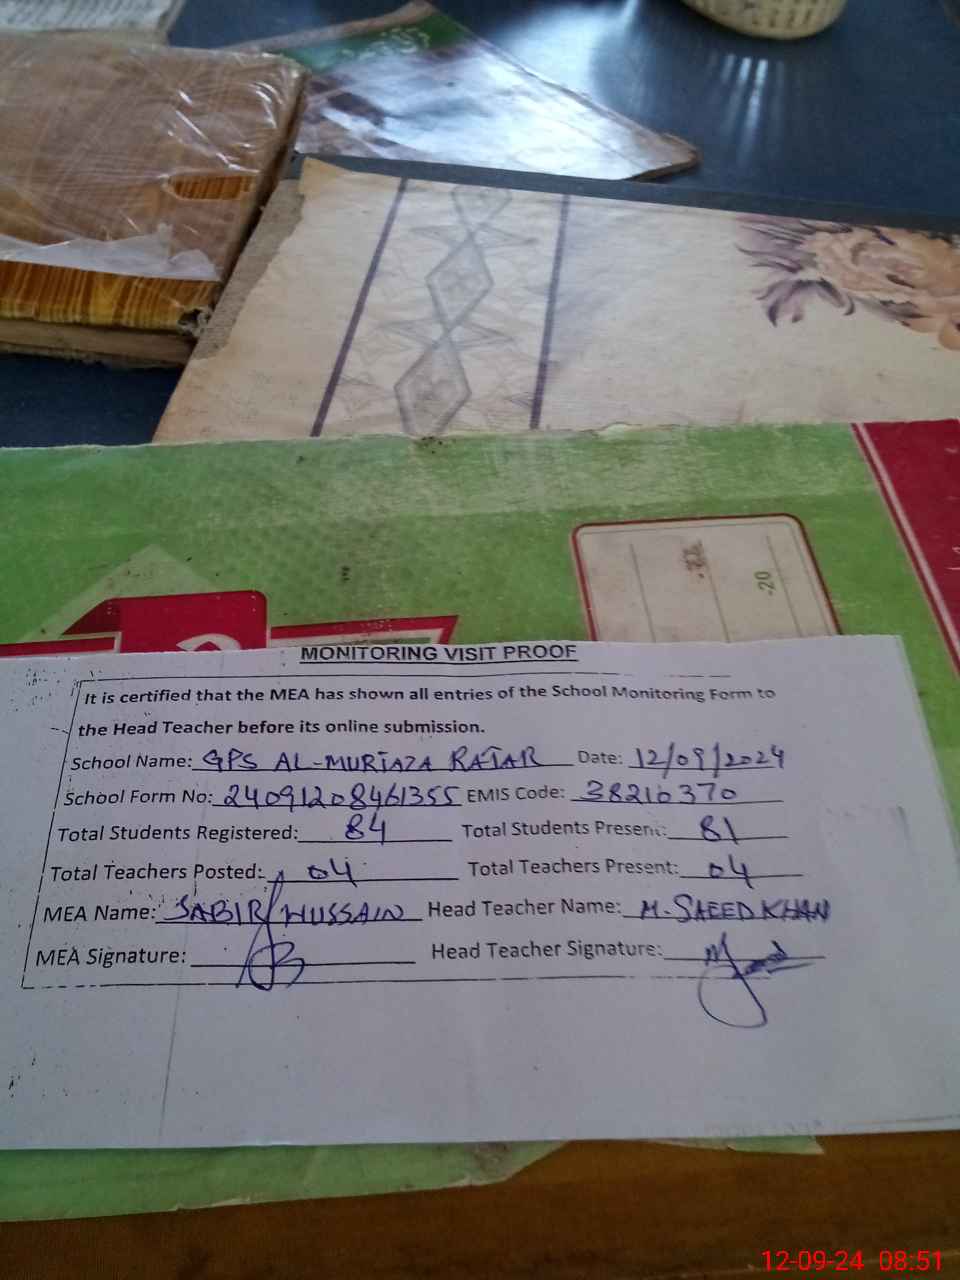 -20
MONITORING VISIT PROOF
It is certified that the MEA has shown all entries of the School Monitoring Form to
the Head Teacher before its online submission.
School Name: GPS AL-MURTAZA RATAR Date: 12/09/2024
School Form No: 24091208461355 EMIS Code: 38210370
Total Students Registered: 84 Total Students Present: 81
Total Teachers Posted: 04 Total Teachers Present: 04
MEA Name: SABIR HUSSAIN Head Teacher Name: M. SAEED KHAN
MEA Signature: Head Teacher Signature:
12-09-24 08:51